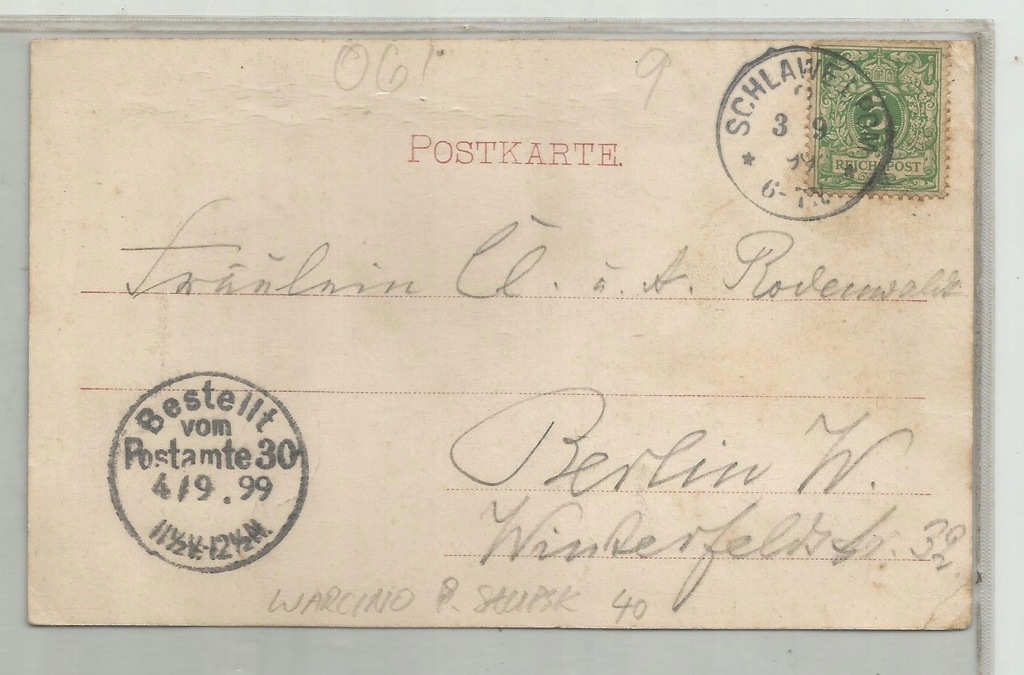 061 9
POSTKARTE.
SCHLAWE
3 9
99
6-7N.
5
REICHSPOST
Fräulein Cl. u. A. Rodenwaldt
Bestellt
vom
Postamte 30
4/9.99
11½V.-12½N.
Berlin W.
Winterfeldstr. 32
WARCINO P. SŁUPSK 40